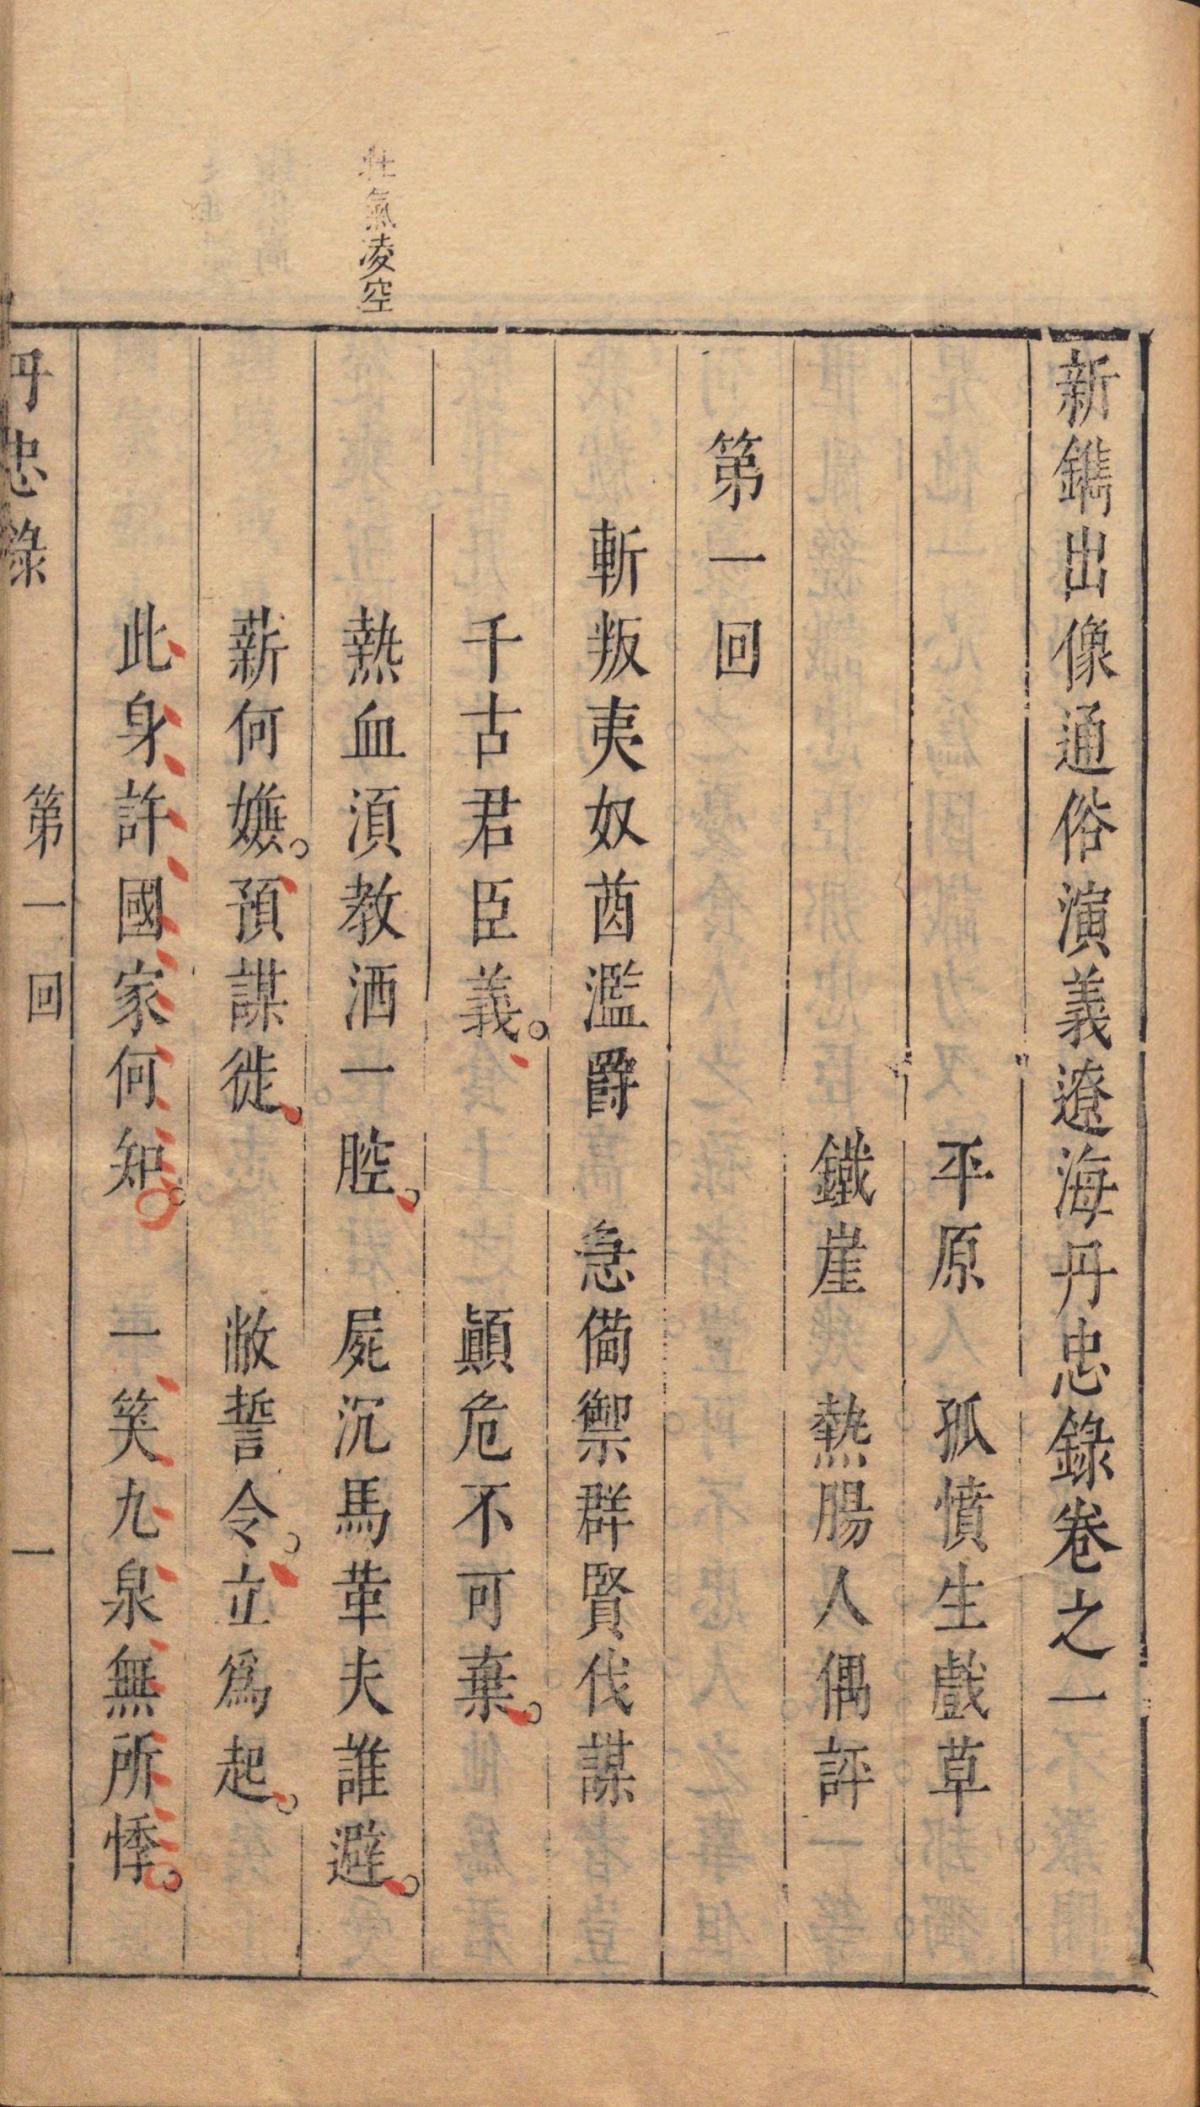 新鐫出像通俗演義遼海丹忠錄卷之一
平原　孤憤生戲草
鐵崖　熱腸人偶評
第一回
斬叛夷奴酋濫爵　急備禦群賢伐謀
千古君臣義。　顚危不可棄。
熱血湏教洒一腔。　屍沉馬革夫誰避。
薪何嫌。預謀徙。　敝誓令。立爲起。
此身許國家何知。　一笑九泉無所悸。
壯氣凌空
丹忠錄　第一回　一